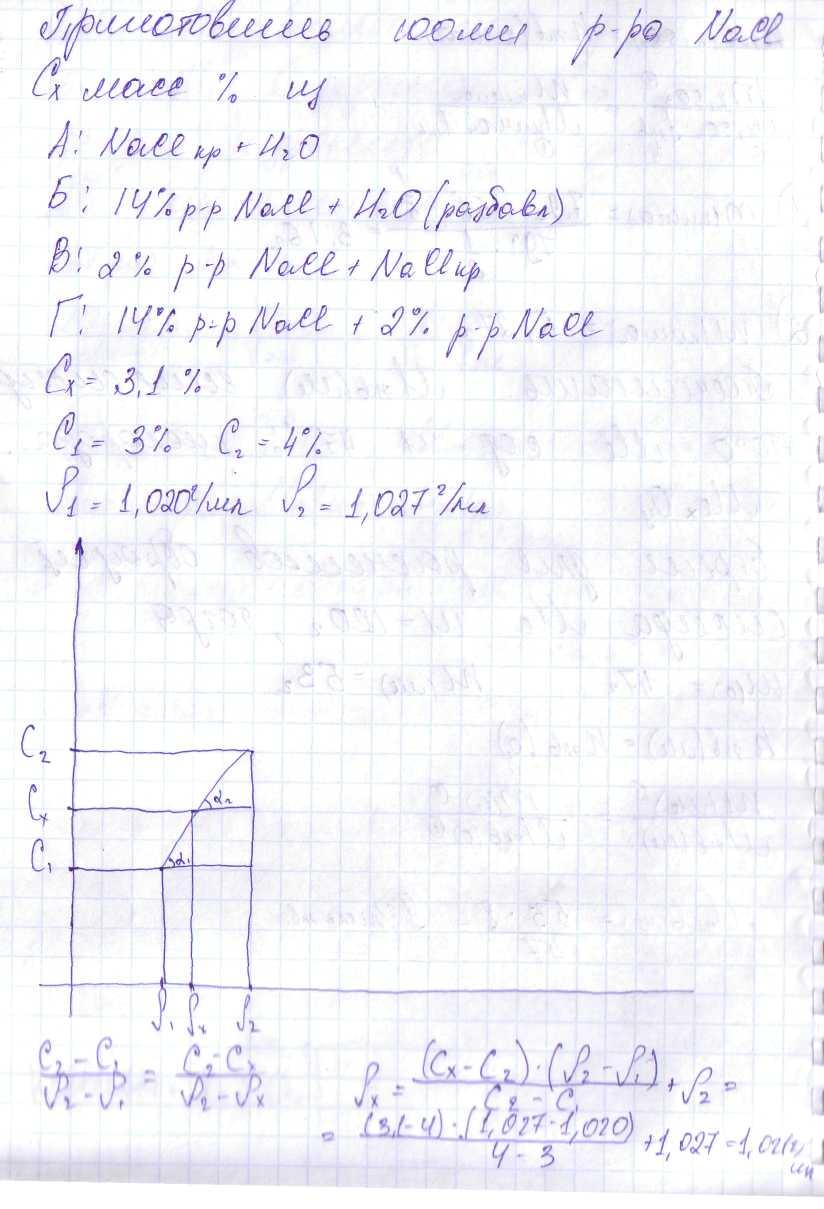 Приготовить 100мл р-ра NaCl
Cx масс % из
А: NaCl кр + H₂O
Б: 14% р-р NaCl + H₂O (разбавл)
В: 2% р-р NaCl + NaCl кр
Г: 14% р-р NaCl + 2% р-р NaCl
Cx = 3,1 %
C₁ = 3% C₂ = 4%
ρ₁ = 1,020 г/мл ρ₂ = 1,027 г/мл
C₂
α₂
Cx
α₁
C₁
ρ₁ ρx ρ₂
(C₂ - C₁)/(ρ₂ - ρ₁) = (C₂ - Cx)/(ρ₂ - ρx) ρx = (Cx - C₂) · (ρ₂ - ρ₁)/(C₂ - C₁) + ρ₂ =
= (3,1 - 4) · (1,027 - 1,020)/(4 - 3) + 1,027 = 1,021 г/мл